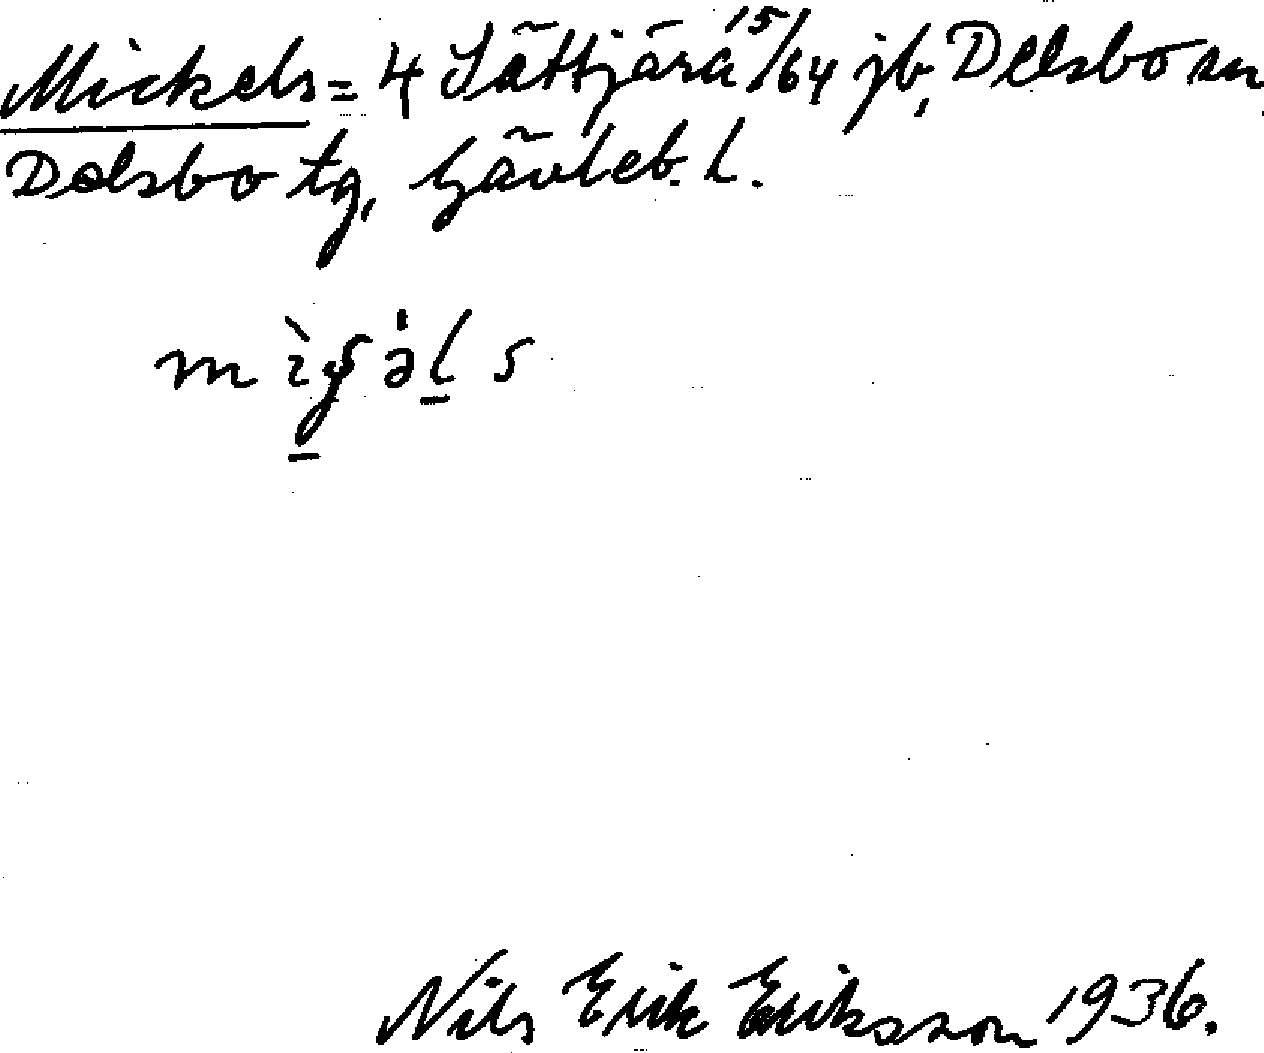 Mickels = 4 Sättjära 15/64 jb, Delsbo sn
Delsbo tg, Gävleb. l.
Nils Erik Eriksson 1936.